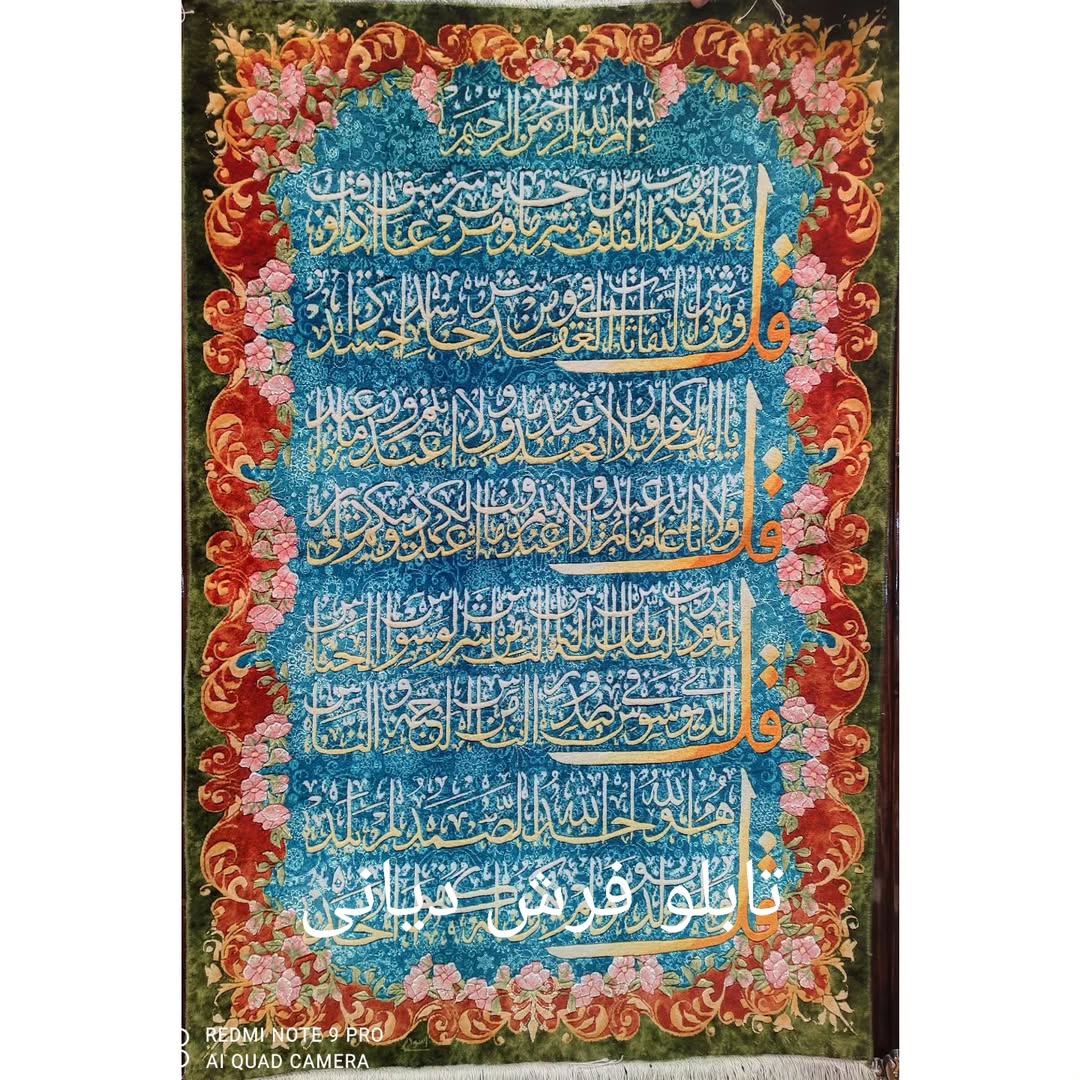 بسم الله الرحمن الرحیم
قل
اعوذ برب الفلق من شر ما خلق ومن شر غاسق اذا وقب
ومن شر النفاثات فی العقد ومن شر حاسد اذا حسد
قل
یا ایها الکافرون لا اعبد ما تعبدون ولا انتم عابدون ما اعبد
ولا انا عابد ما عبدتم ولا انتم عابدون ما اعبد لکم دینکم ولی دین
قل
اعوذ برب الناس ملک الناس اله الناس من شر الوسواس الخناس
الذی یوسوس فی صدور الناس من الجنة و الناس
قل
هو الله احد الله الصمد لم یلد
تابلو فرش دیانی
REDMI NOTE 9 PRO
AI QUAD CAMERA